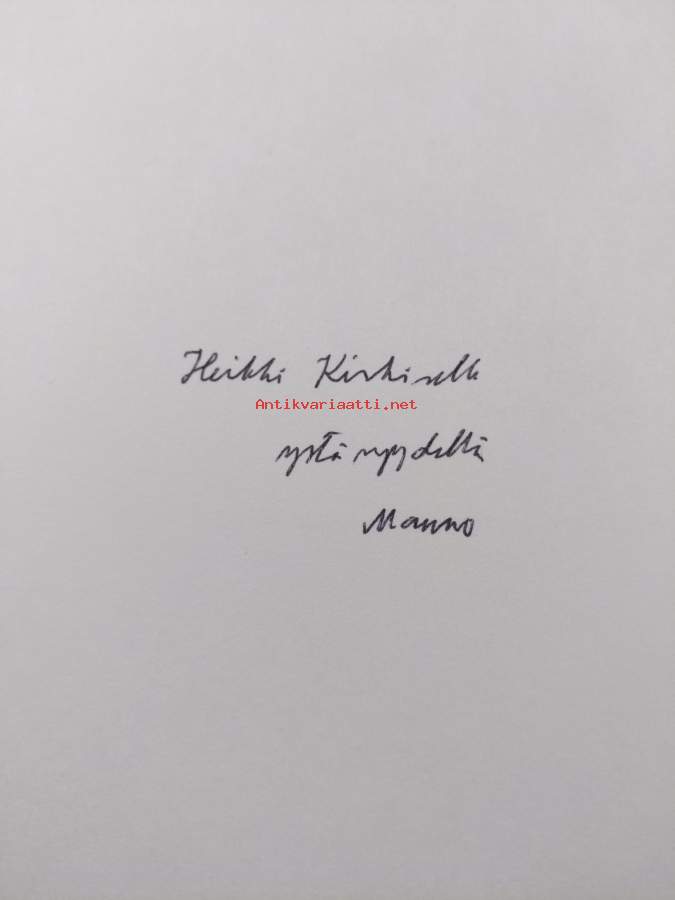 Heikki Kirkiselle
Antikvariaatti.net
ystävyydellä
Mauno